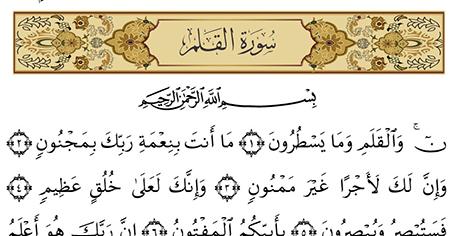 سُورَةُ القَلَمِ
بِسْمِ ٱللَّهِ ٱلرَّحْمَٰنِ ٱلرَّحِيمِ
نٓ ۚ وَٱلْقَلَمِ وَمَا يَسْطُرُونَ ﴿١﴾ مَآ أَنتَ بِنِعْمَةِ رَبِّكَ بِمَجْنُونٍ ﴿٢﴾
وَإِنَّ لَكَ لَأَجْرًا غَيْرَ مَمْنُونٍ ﴿٣﴾ وَإِنَّكَ لَعَلَىٰ خُلُقٍ عَظِيمٍ ﴿٤﴾
فَسَتُبْصِرُ وَيُبْصِرُونَ ﴿٥﴾ بِأَييِّكُمُ ٱلْمَفْتُونُ ﴿٦﴾ إِنَّ رَبَّكَ هُوَ أَعْلَمُ